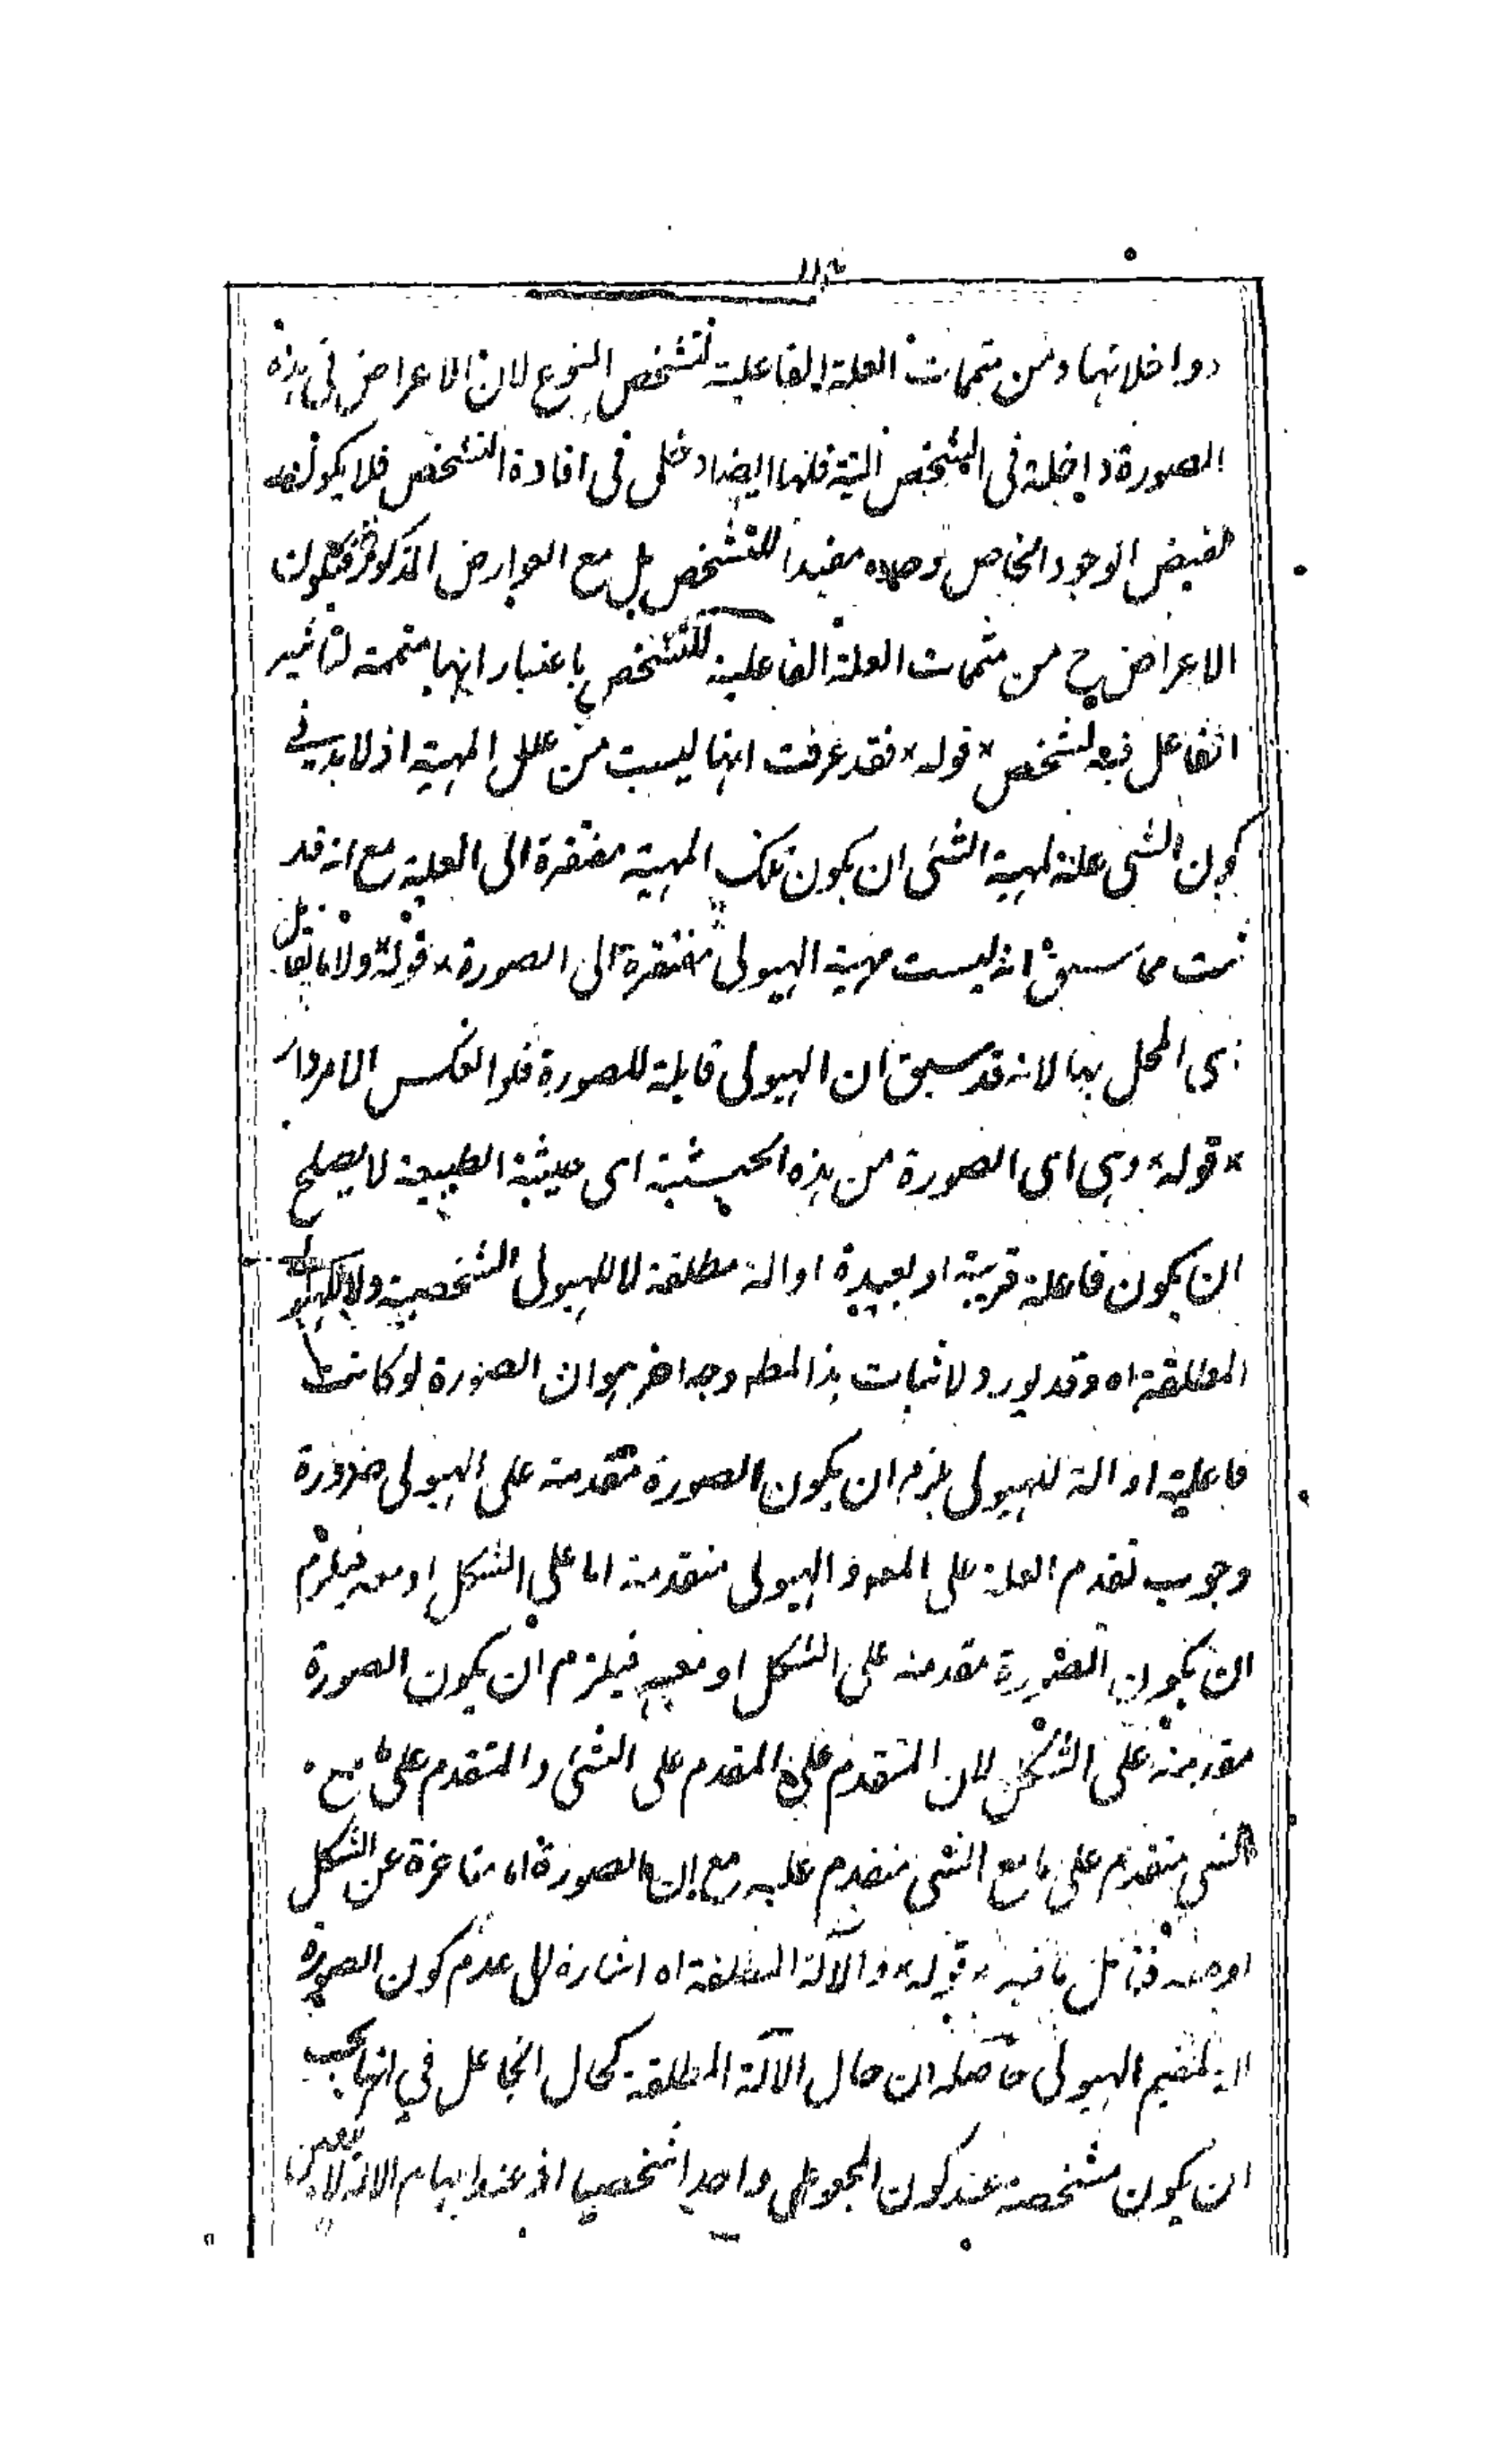 ١١٤
دواخلاتها ومن متممات العلة الفاعلية لتشخص النوع لان الاعراض فى هذه
الصورة داخلة فى المشخص البتة فلها ايضا دخل فى افادة التشخص فلا يكون
مفيض الوجود الخاص وحده مفيدا للتشخص بل مع العوارض المذكورة فتكون
الاعراض ح من متممات العلة الفاعلية للتشخص باعتبار انها متممة لتاثير
الفاعل فيه لتشخص * قوله * فقد عرفت انها ليست من علل المهية اذ لا بد فى
كون الشى علة لمهية الشئ ان يكون تلك المهية مفتقرة الى العلية مع انه قد
ثبت مما سبق انه ليست مهية الهيولى مفتقرة الى الصورة * قوله * ولا ما يقابل
اى المحل بها لانه قد سبق ان الهيولى قابلة للصورة فلو انعكس الامر دار
* قوله * وهى اى الصورة من هذه الحيثية اى حيثية الطبيعة لا يصلح
ان يكون فاعلة قريبة او بعيدة او الة مطلقة لا للهيولى الشخصية ولا للهيولى
المطلقة اه وقد يورد لاثبات هذا المط وجه اخر هو ان الصورة لو كانت
فاعلية او الة للهيولى يلزم ان يكون الصورة متقدمة على الهيولى ضرورة
وجوب تقدم العلة على المعه و الهيولى متقدمة اما على الشكل او معه فيلزم
ان يكون الصورة مقدمة على الشكل او معيه فيلزم ان يكون الصورة
مقدمة على الشكل لان المتقدم على المقدم على الشئ والمتقدم على مع
الشى متقدم على ما مع الشى متقدم عليه مع ان الصورة اما متاخرة عن الشكل
او معه فتامل ما فيه * قوله * و الآلة المطلقة اه اشارة الى عدم كون الصورة
الة لمقيم الهيولى حاصله ان حال الآلة المطلقة كحال الجاعل فى انها يجب
ان يكون مشخصة عند كون المجعول واحدا شخصيا اذ عند ابهام الالة لا يتعين